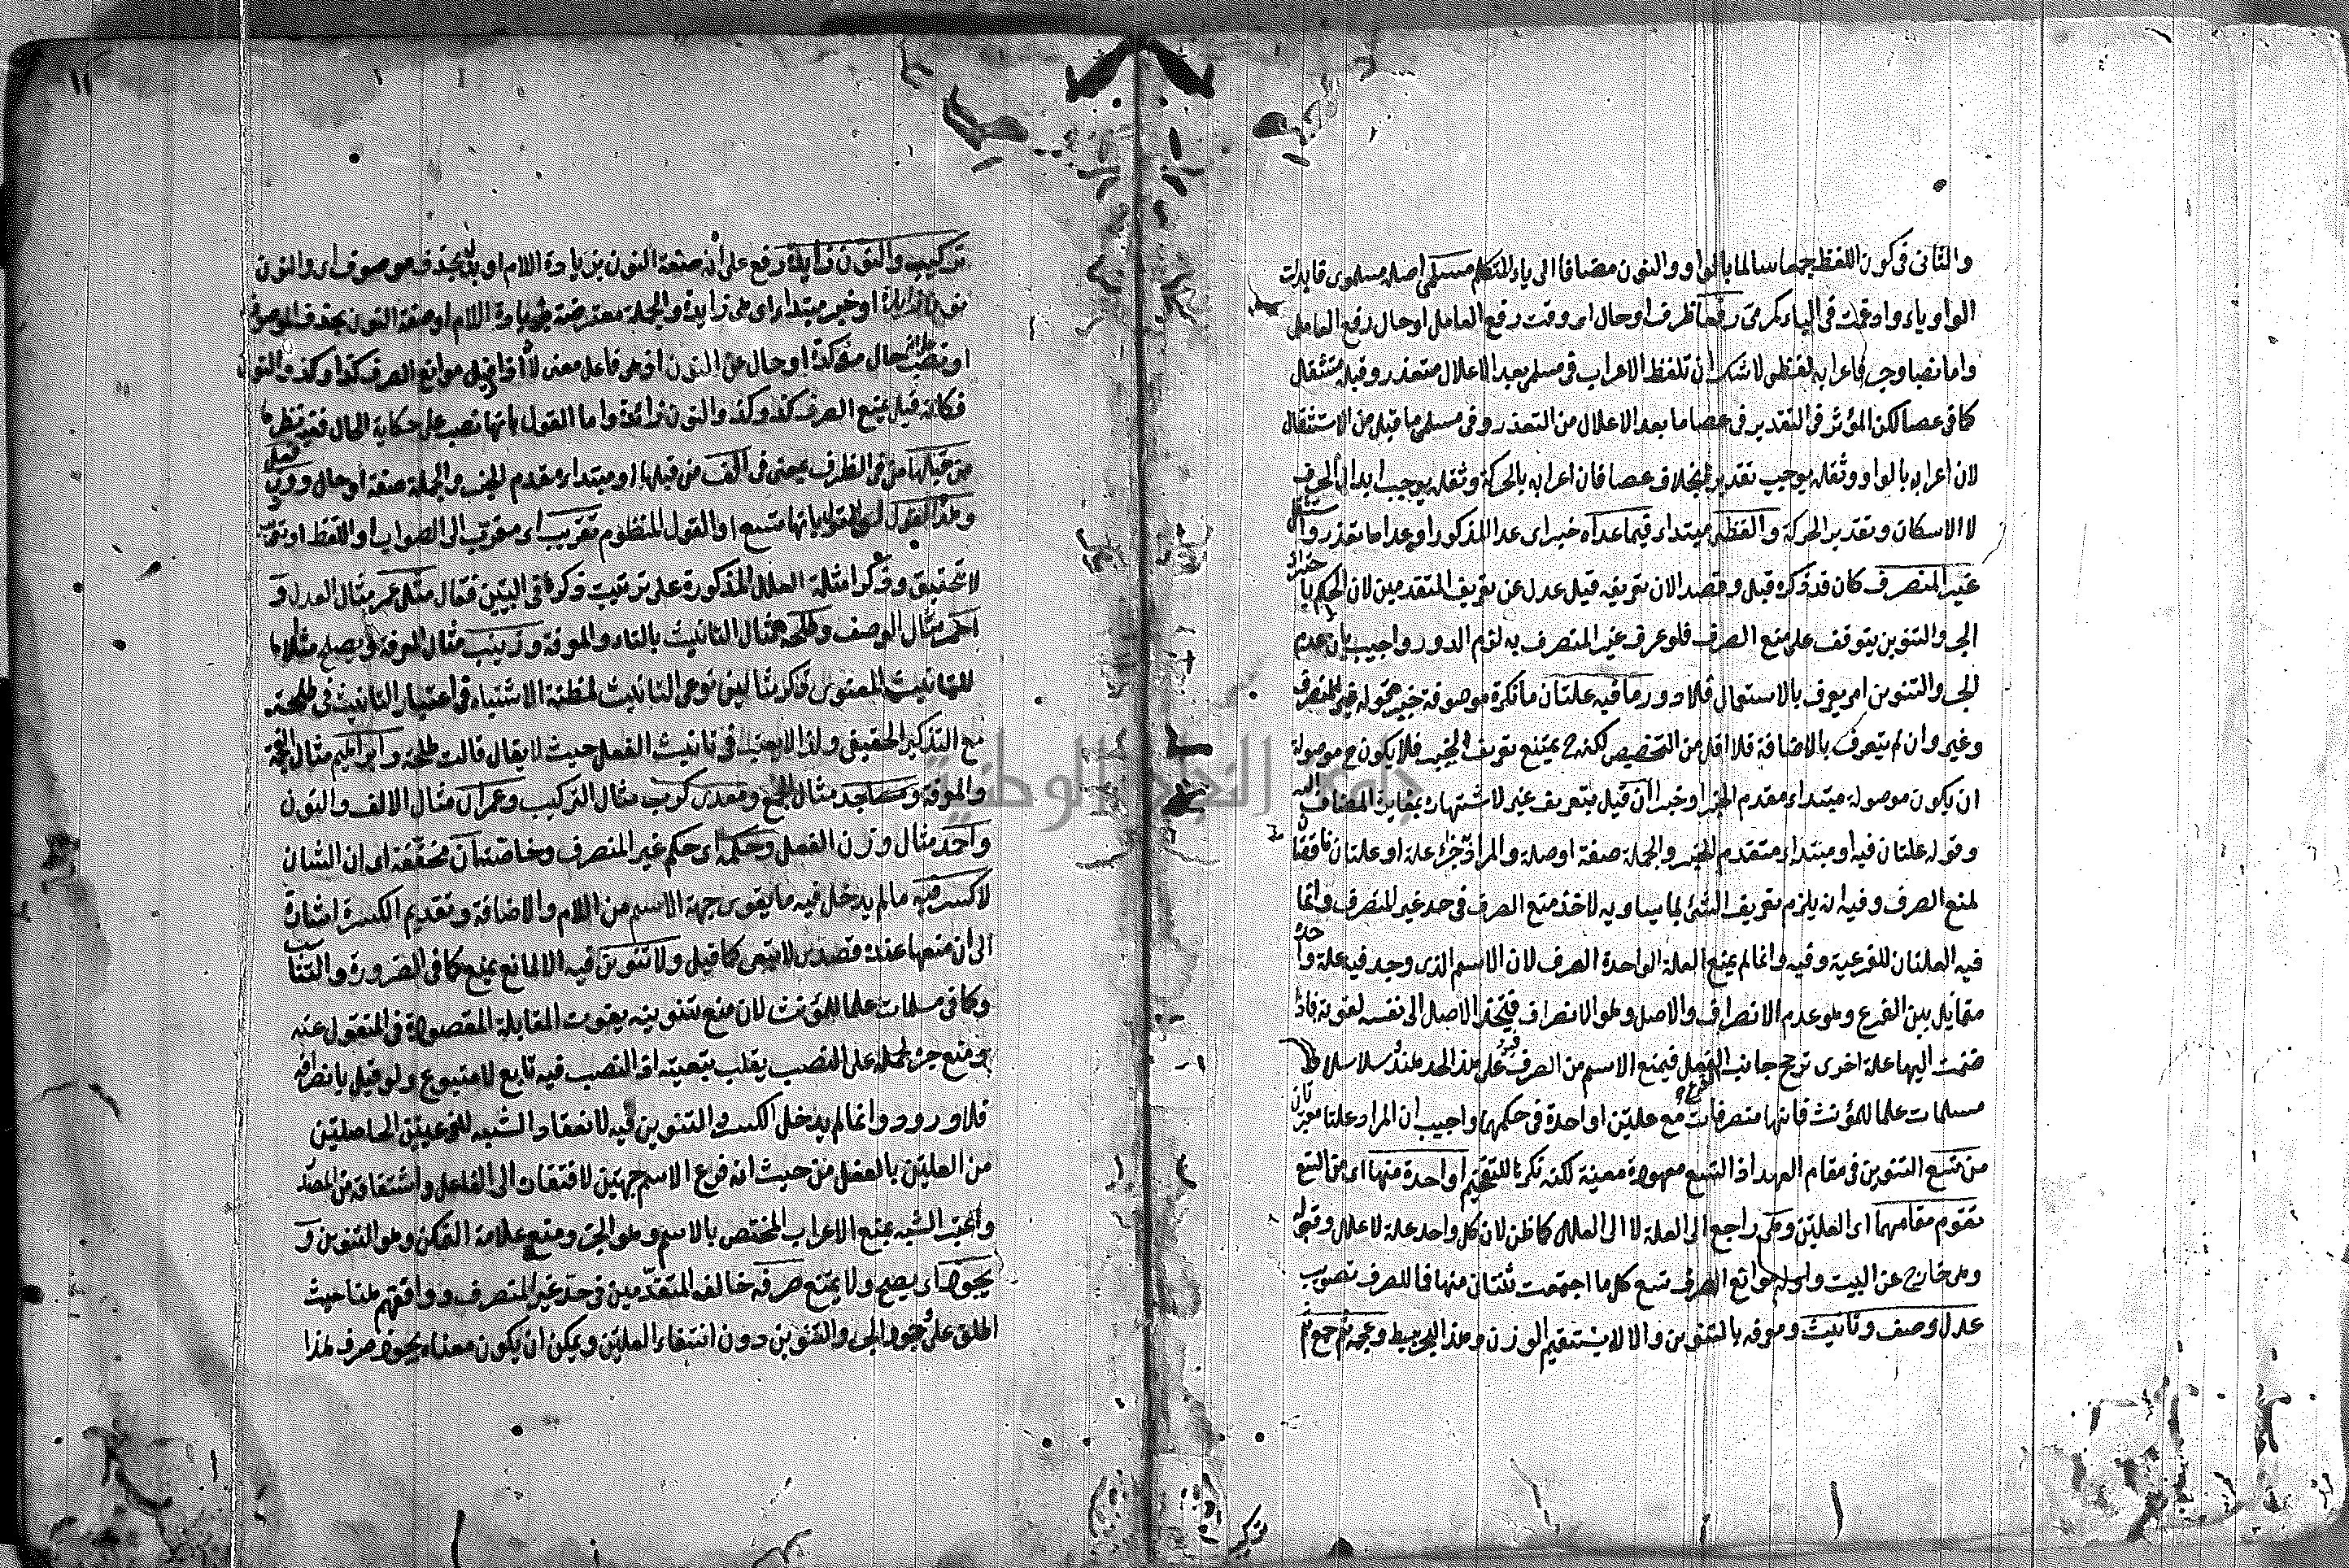 والثاني في كون اللفظ جمعا سالما بالواو والنون مضافا الى ياء المتكلم مسلمي اصله مسلموى فابدلت
الواو ياء وادغمت في الياء كمرمى رفعا ظرف او حال اى وقت رفع العامل او حال رفع العامل
واما نصبا وجرا فاعرابه لفظى لا شك ان تلفظ الاعراب في مسلمى بعد الاعلال متعذر وقبله متثقل
كما في عصا لكن المؤثر في التقدير في عصا ما بعد الاعلال من التعذر وفى مسلمى ما قبله من الاستثقال
لان اعرابه بالواو وثقله يوجب تقديره بخلاف عصا فان اعرابه بالحركة وثقله يوجب ابدال الحرف
لا الاسكان وتقدير الحركة واللفظى مبتداء فيما عداه خبر اى عدا المذكور او عدا ما تعذر واستثقل
غير المنصرف كان قد ذكره قبل وقصد الان تعريفه قيل عدل عن تعريف المتقدمين لان الحكم بان
الجر والتنوين يتوقف على منع الصرف فلو عرف غير المنصرف به لزم الدور واجيب بان عدم
الجر والتنوين امر يعرف بالاستعمال فلا دور ما فيه علتان ما نكرة موصوفة خبر قوله غير المنصرف
وغير وان لم يتعرف بالاضافة فلا اقل من التخصيص لكنه ح يمتنع تعريف الخبر فلا يكون ح موصولة
ان يكون موصولة مبتداء مقدم الخبر او خبرا ان قيل بتعريف غير لاشتهاره بمغايرة المضاف اليه
وقوله علتان فيه او مبتداء متقدم الخبر والجملة صفة او صلة والمراد جزء علة او علتان ناقصتان
لمنع الصرف وفيه انه يلزم تعريف الشئ بما يساويه لاخذ منع الصرف في حد غير المنصرف وانما
فيه العلتان للفرعية وفيه وانما لم يمنع العلة الواحدة الصرف لان الاسم الذى وجد فيه علة واحدة
مقابل بين الفرع وهو عدم الانصراف والاصل وهو الانصراف فينجذب الاصل الى نفسه لقوته فاذا
ضمت اليها علة اخرى ترجح جانب الفعل فيمنع الاسم من الصرف على هذا الحد
مسلمات علما للمؤنث فانها منصرفات مع علتين او واحدة في حكمهما واجيب ان المراد علتان معتبرتان
من تسع التنوين في مقام العهد اذ التسع معهودة معينة لكنه نكرها للتفخيم او واحدة منها اى من التسع
تقوم مقامهما اى العلتين وهى راجع الى العلة لا الى العلل كما ظن لان كل واحد علة لا علل وقبله
وهى خارج عن البيت واوله موانع الصرف تسع كل ما اجتمعت ثنتان منها فما للصرف تصويب
عدل وصف وتانيث ومعرفة بالتنوين والا لا يستقيم الوزن وهذا البحر بسيط وعجمة ثم جمع ثم
تركيب
تركيب والنون زايدة رفع على انه صفة النون بزيادة اللام او بحذف موصوف اى والنون
نون زايدة او خبر مبتداء اى هى زايدة والجملة معترضة بزيادة اللام او صفة النون بحذف الموصوف
او نصب حال مؤكدة او حال عن النون اذ هو فاعل معنى لانه اذا قيل موانع الصرف كذا وكذا والنون
فكانه قيل يمنع الصرف كذا وكذا والنون زائدة واما القول بانها نصب على حكاية الحال ففيه نظر
من قبلها من في الظرف بمعنى في الف من قبلها او مبتداء مقدم الخبر والجملة صفة او حال
وهذا القول اى القول بانها تسع او القول المنظوم تقريب اى مقرب الى الصواب او اللفظ او تقريب
لا تحقيق وذكر امثلة العلل المذكورة على ترتيب ذكره في البيتين فقال مثل عمر مثال العدل و
احمر مثال الوصف وطلحة مثال التانيث بالتاء والمعرفة وزينب مثال المعرفة ويصلح مثالا
للتانيث المعنوى ذكر مثالين نوعى التانيث لمظنة الاشتباه في اعتبار التانيث في طلحة
مع التذكير الحقيقى ولذا لا يعتبر في تانيث الفعل حيث لا يقال قالت طلحة وابراهيم مثال العجمة
والمعرفة ومساجد مثال الجمع ومعدى كرب مثال التركيب وعمران مثال الالف والنون
واحمد مثال وزن الفعل وحكمه اى حكم غير المنصرف وخاصته ان مخففة اى ان الشان
لا كسر فيه ما لم يدخل فيه ما يقوى جهة الاسم من اللام والاضافة وتقديم الكسرة اشارة
الى ان منعها عنده قصدى لا تبعى كما قيل ولا تنوين فيه الا لمانع يمنع كما في الضرورة والتناسب
وكما في مسلمات علما للمؤنث لان منع تنوينه يفوت المقابلة المقصودة في المنقول عنه
ومنع جره لحمله على النصب يقلب تبعيته اذ النصب فيه تابع لا متبوع ولو قيل بانصرافه
فلا ورود وانما لم يدخل الكسر والتنوين فيه لانعقاد الشبه للفرعيتين الحاصلتين
من العلتين بالفعل من حيث انه فرع الاسم جهتين لافتقاره الى الفاعل واشتقاقه من المصدر
واعتبر الشبه بمنع الاعراب المختص بالاسم وهو الجر ومنع علامة التمكن وهو التنوين و
يجوز اى يصح ولا يمتنع صرفه خالف المتقدمين في حد غير المنصرف ووافقهم هنا حيث
اطلق على وجود الجر والتنوين دون انتفاء العلتين ويمكن ان يكون معناه يجوز صرف هذا
جامعة النجاح الوطنية